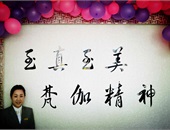 至真至美
梵伽精神